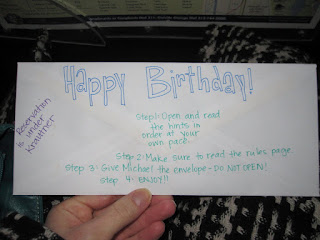 Happy Birthday!
Step 1: Open and read
the hints in
order at your
own pace.
Step 2: Make sure to read the rules page.
Step 3: Give Michael the envelope - DO NOT OPEN!
Step 4: ENJOY!!
Reservation
is under
Krautner